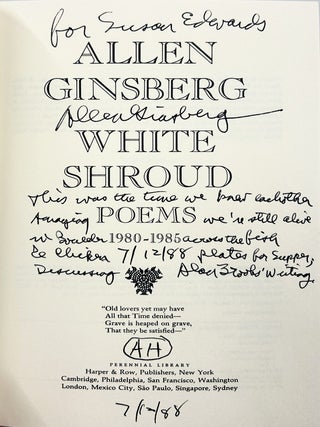 for Susan Edwards
ALLEN
GINSBERG
Allen Ginsberg
WHITE
SHROUD
This was the time we knew each other
Amazing POEMS we're still alive
in Boulder 1980-1985 across the fish
& Chicken 7/12/88 plates for supper,
Discussing Alan Brooks' Writing.
"Old lovers yet may have
All that Time denied—
Grave is heaped on grave,
That they be satisfied—"
AH
PERENNIAL LIBRARY
Harper & Row, Publishers, New York
Cambridge, Philadelphia, San Francisco, Washington
London, Mexico City, São Paulo, Singapore, Sydney
7/12/88